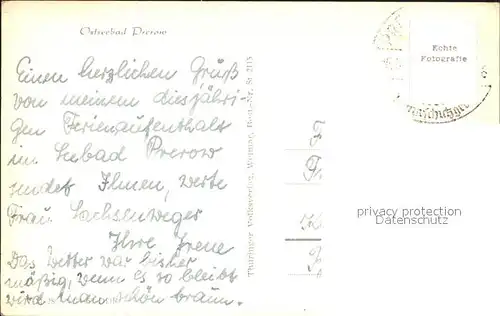 Ostseebad Prerow
Einen herzlichen Gruß
von meinem diesjähri-
gen Ferienaufenthalt
im Seebad Prerow
sendet Ihnen, werte
Frau Sachsenweger
Ihre Irene
Das Wetter war bisher
mäßig, wenn es so bleibt
wird man schön braun.
Thüringer Volksverlag, Weimar,
Echte
Fotografie
privacy protection
Datenschutz